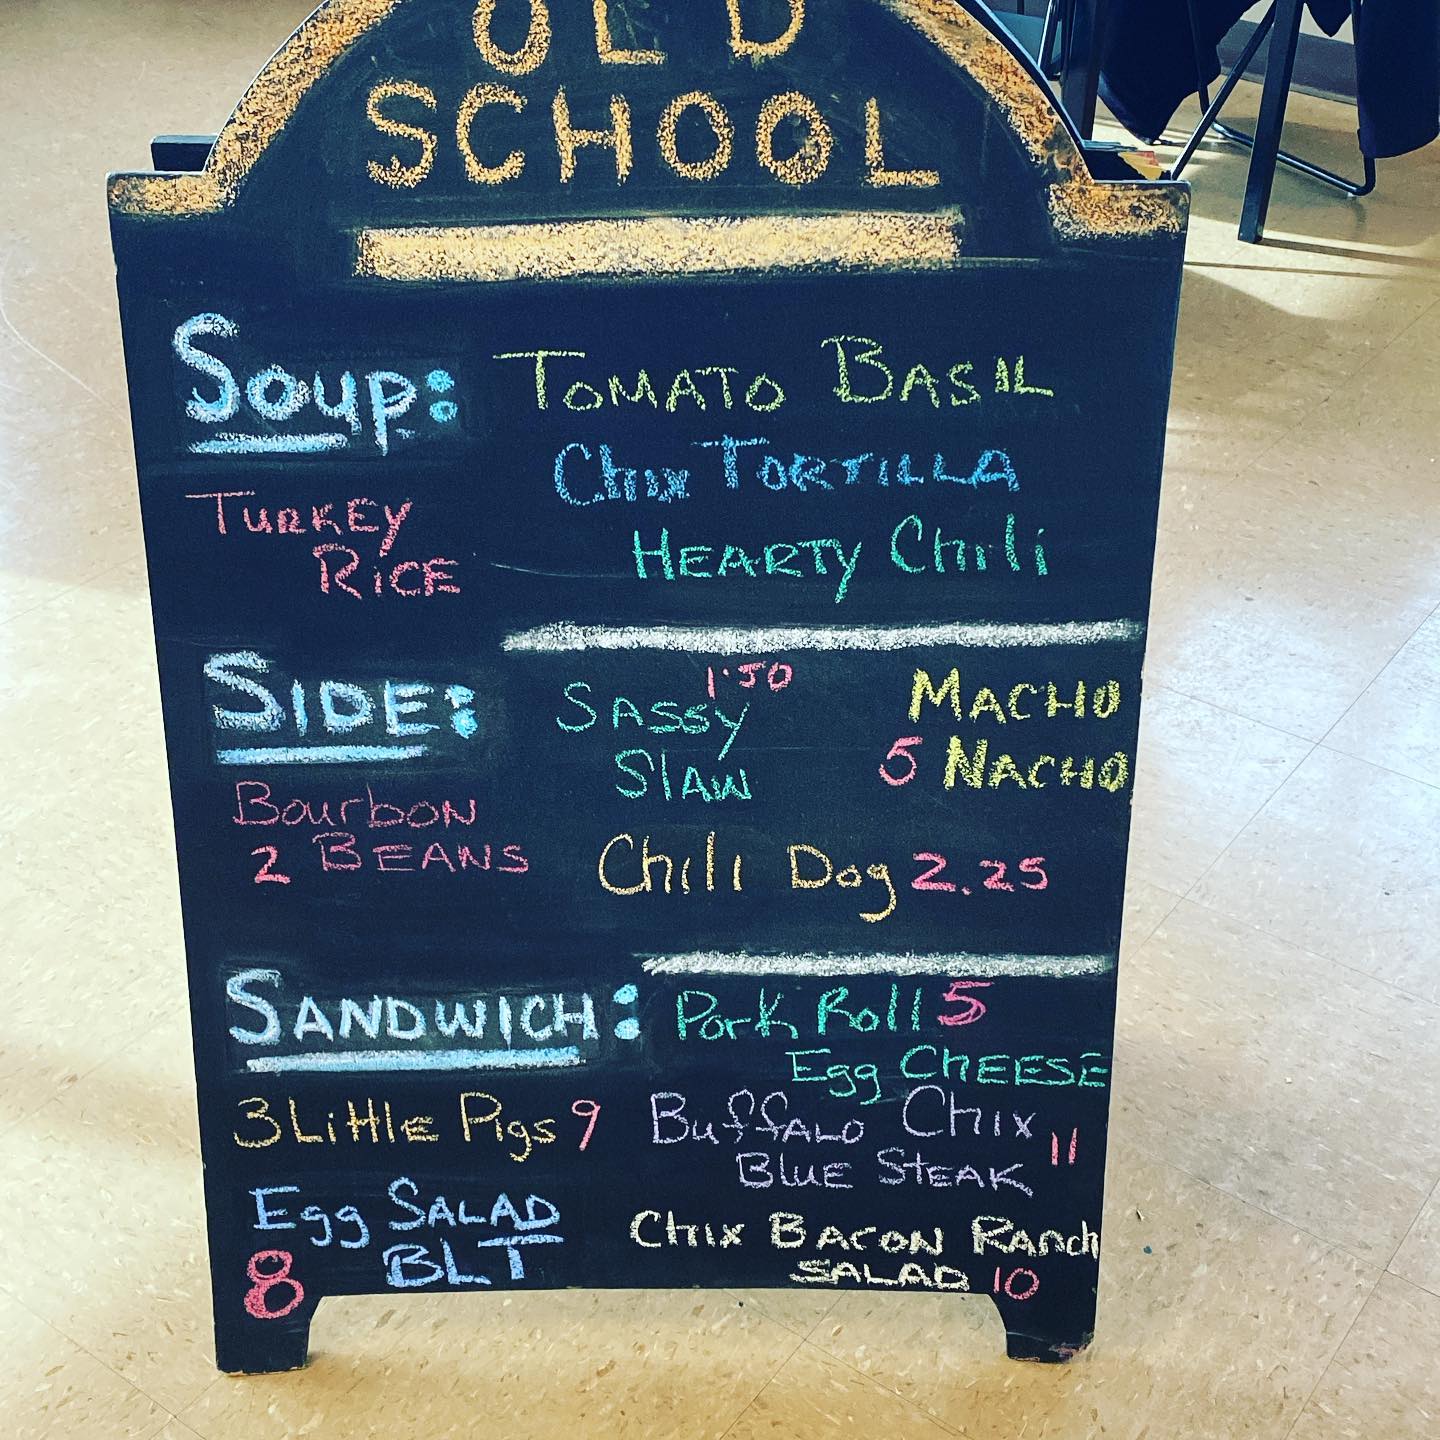 OLD
SCHOOL
Soup:
TURKEY
RiCE
TOMATO BASIL
Chix TORTILLA
HEARTY Chili
SIDE:
Bourbon
2 BEANS
1.50
SASSY
SlAW
MACHO
5 NACHO
Chili Dog 2.25
SANDWICH:
3 LittlE Pigs 9
Egg SALAD
BLT
8
Pork Roll 5
Egg CHEESE
BuffALO Chix
BLUE STEAK 11
Chix BACON RANch
SALAD 10